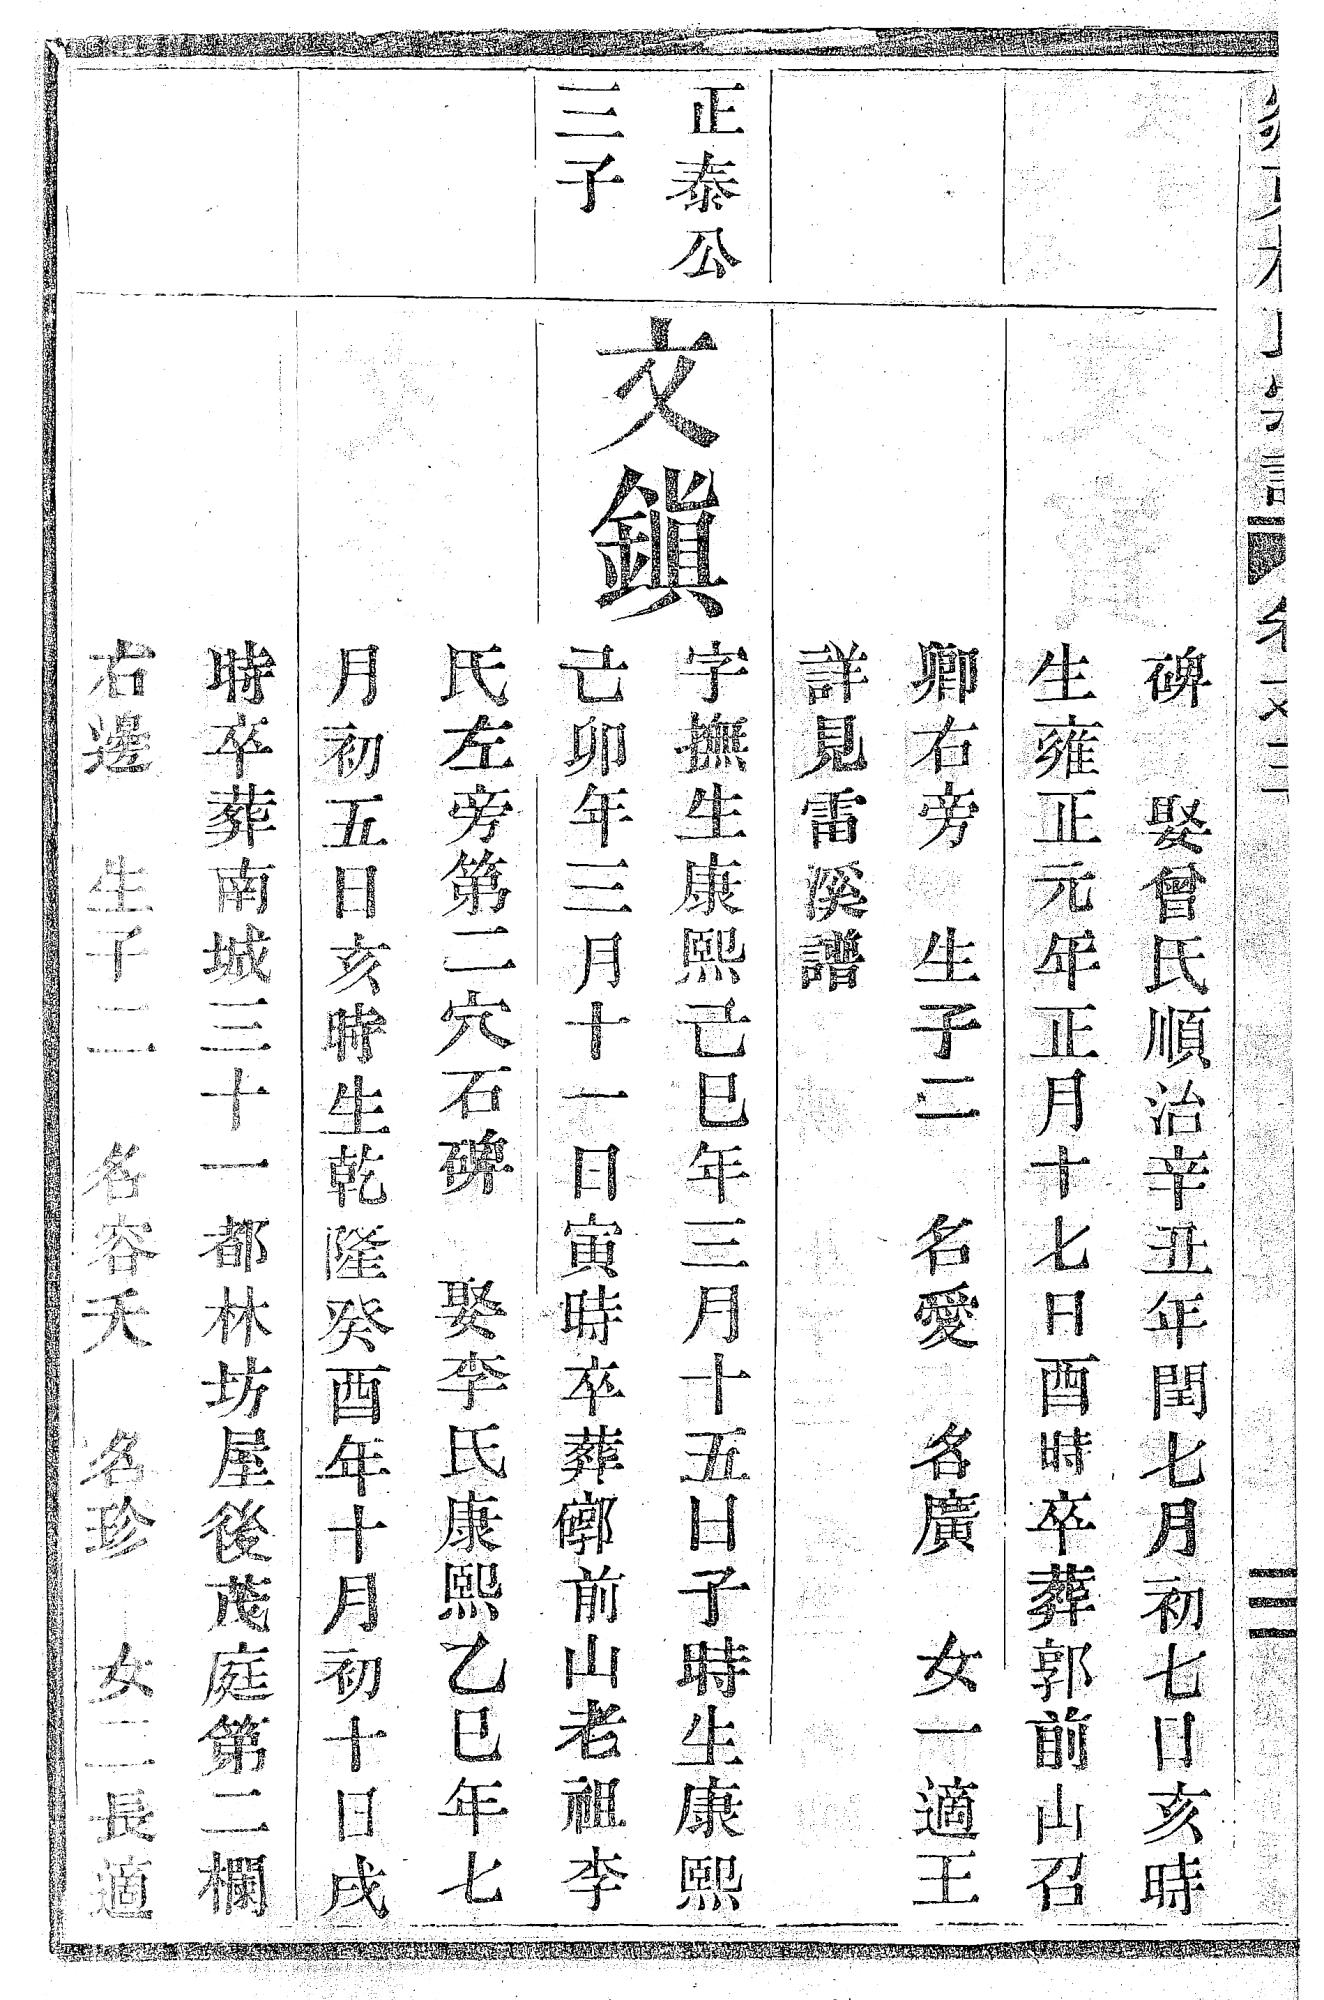 碑　娶曾氏順治辛丑年閏七月初七日亥時
生雍正元年正月十七日酉時卒葬郭前山召
卿右旁　生子二　名愛　名廣　女一適王
詳見雷溪譜
正泰公
三子
文鎭
字撫生康熙己巳年三月十五日子時生康熙
己卯年三月十一日寅時卒葬鄭前山老祖李
氏左旁第二穴石碑　娶李氏康熙乙巳年七
月初五日亥時生乾隆癸酉年十月初十日戌
時卒葬南城三十一都林坊屋後茂庭第二欄
右邊　生子二　名容夭　名珍　女二長適